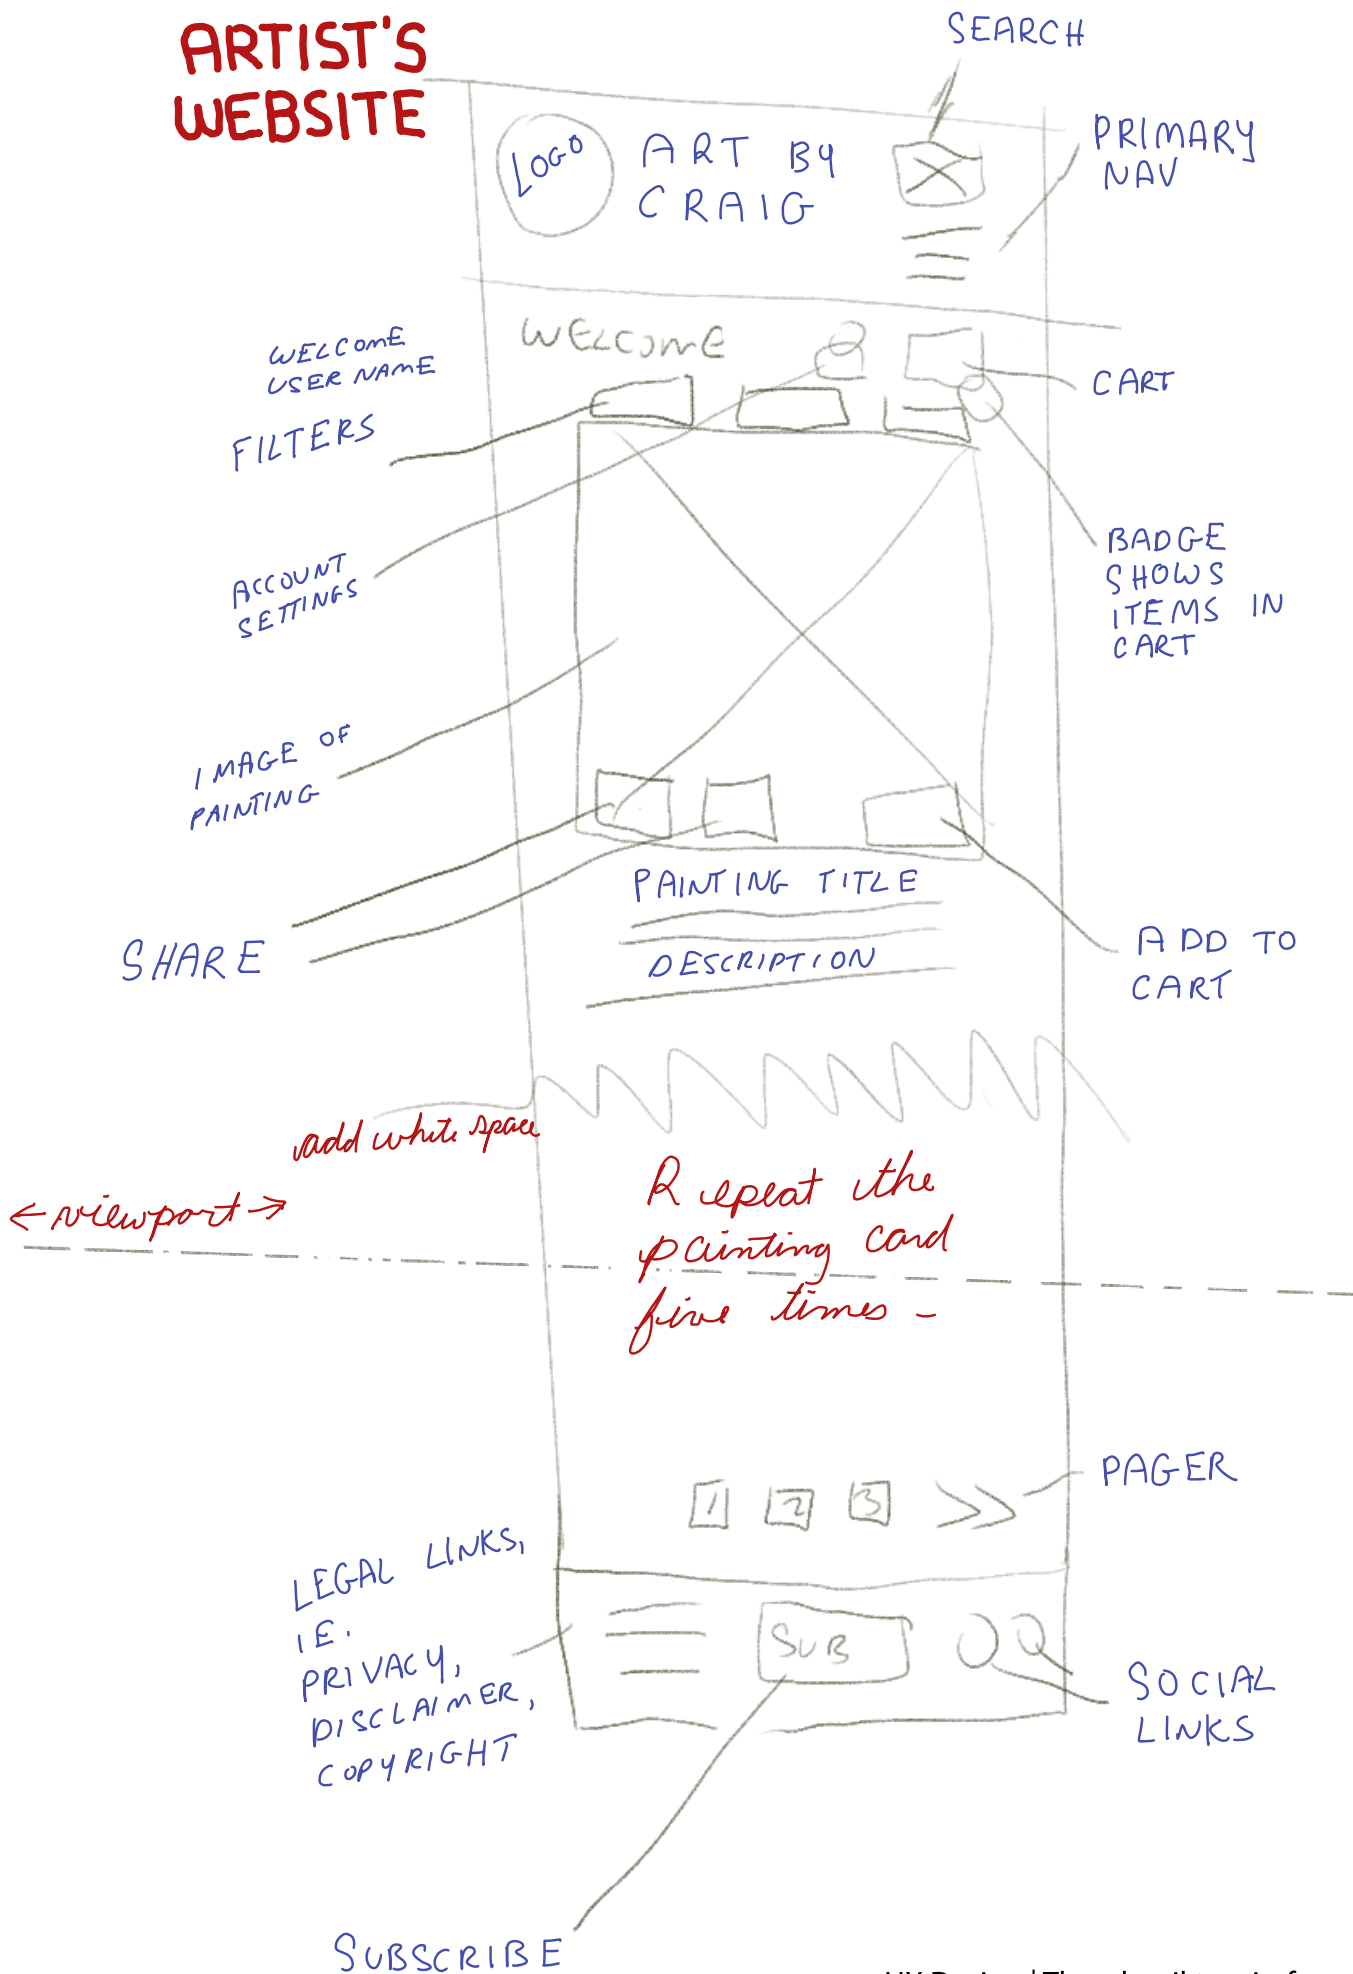 ARTIST'S
WEBSITE
SEARCH
PRIMARY
NAV
LOGO
ART BY
CRAIG
WELCOME
USER NAME
WELCOME
CART
FILTERS
ACCOUNT
SETTINGS
BADGE
SHOWS
ITEMS IN
CART
IMAGE OF
PAINTING
SHARE
PAINTING TITLE
DESCRIPTION
ADD TO
CART
add white space
viewport
Repeat the
painting card
five times -
1 2 3 >>
PAGER
LEGAL LINKS,
IE.
PRIVACY,
DISCLAIMER,
COPYRIGHT
SUB
SOCIAL
LINKS
SUBSCRIBE